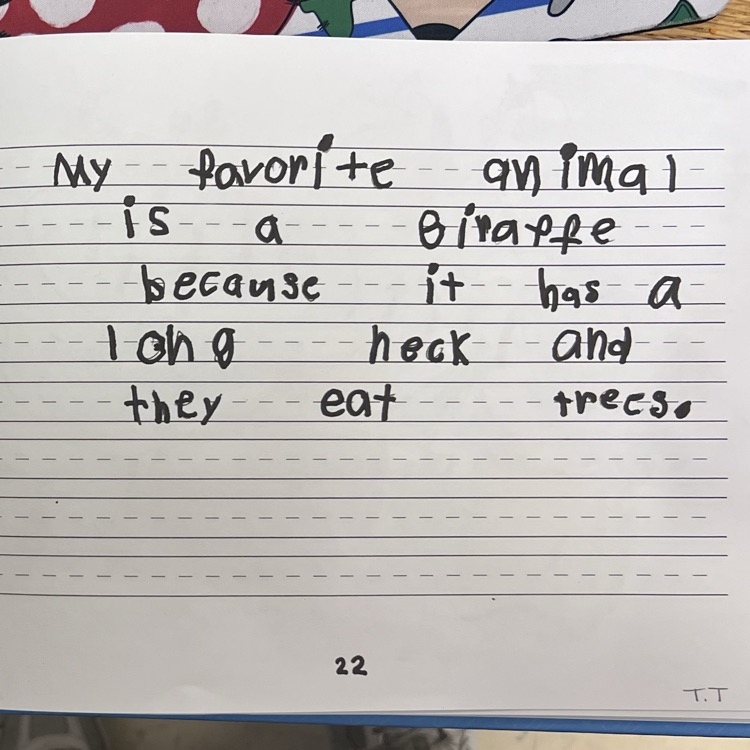 My favorite animal
is a Giraffe
because it has a
long neck and
they eat trees.
22
T.T